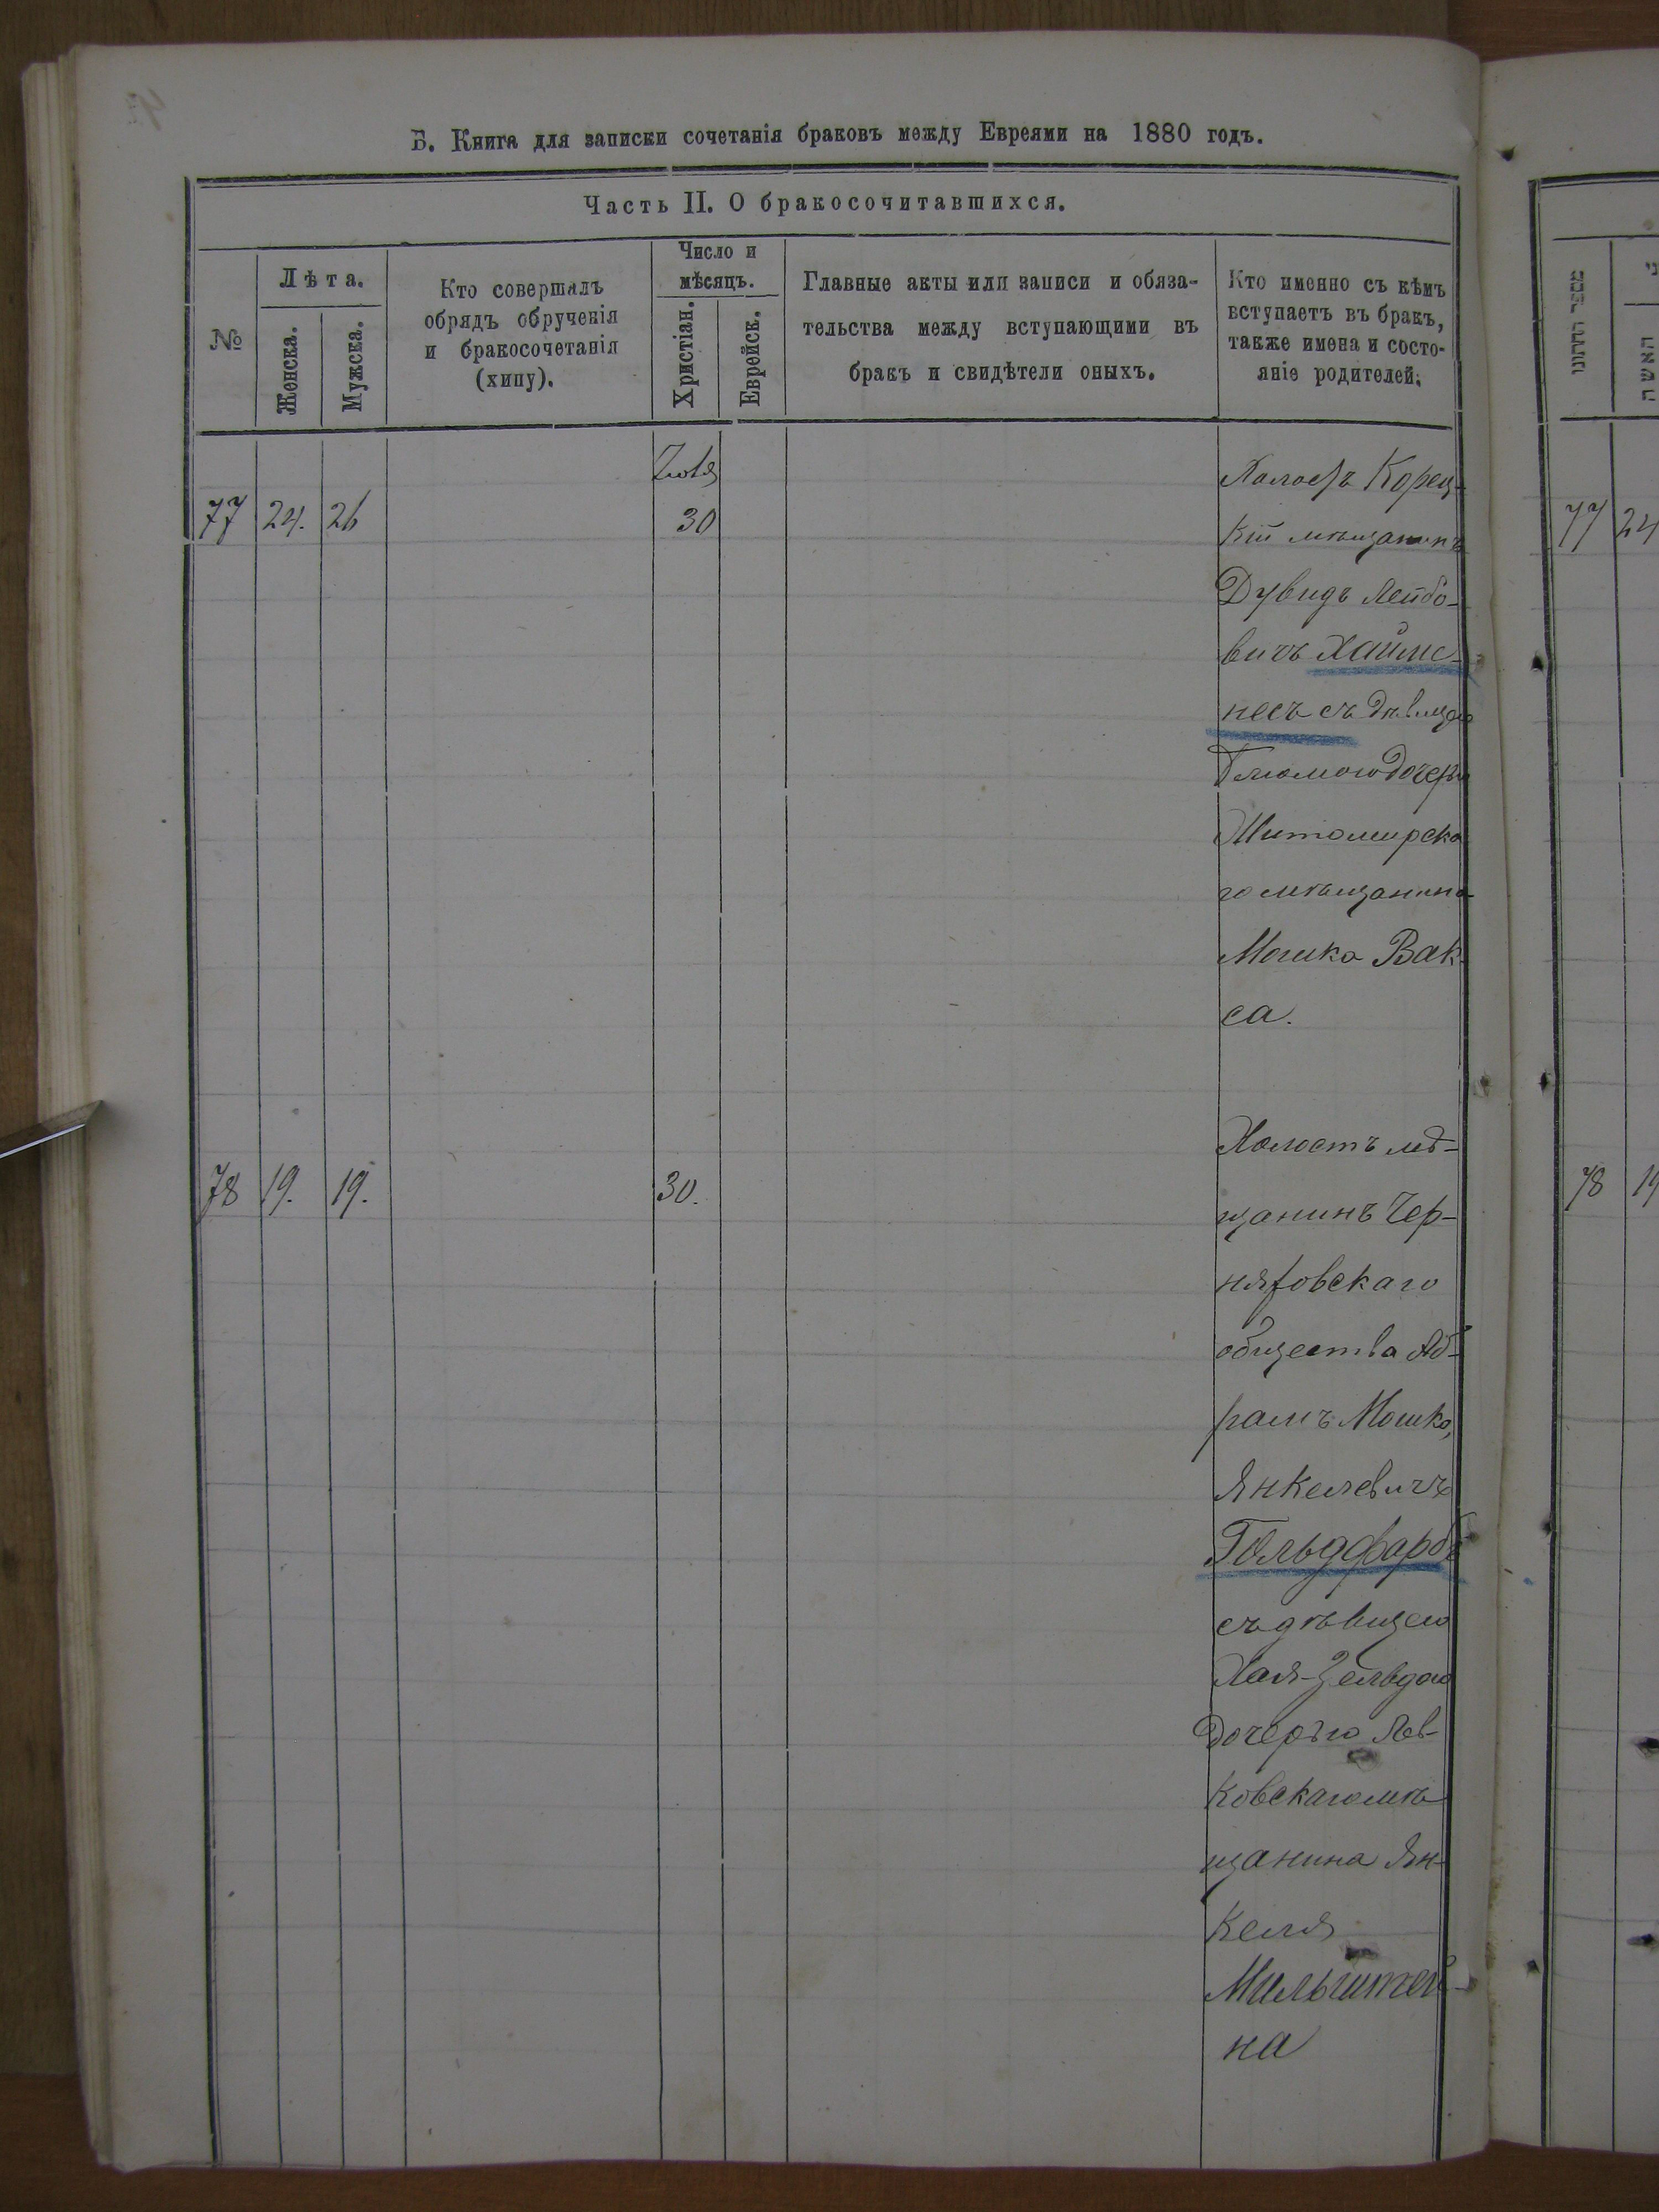 Б. Книга для записки сочетанія браковъ между Евреями на 1880 годъ.
Часть II. О бракосочитавшихся.
№
Лѣта.
Женска.
Мужска.
Кто совершалъ
обрядъ обрученія
и бракосочетанія
(хипу).
Число и
мѣсяцъ.
Христіан.
Еврейск.
Главные акты или записи и обяза-
тельства между вступающими въ
бракъ и свидѣтели оныхъ.
Кто именно съ кѣмъ
вступаетъ въ бракъ,
также имена и состо-
яніе родителей.
77 24. 26
30
Холостъ Корец-
кій мѣщанинъ
Дувидъ Лейбо-
вичъ Хаймс-
несъ съ дѣвицею
Блюмою дочерью
Житомирска
го мѣщанина
Мошка Вак-
са.
78 19. 19. 30.
Холостъ мѣ-
щанинъ Чер-
няховскаго
общества Аб-
рамъ Мошко,
Янкелевичъ
Гольдфарбъ
съ дѣвицею
Хая-Зельдою
дочерью Лев-
ковскаго мѣ
щанина Ян-
келя
Мильштей-
на
מספר החתונו
האשה
77 24
78 19